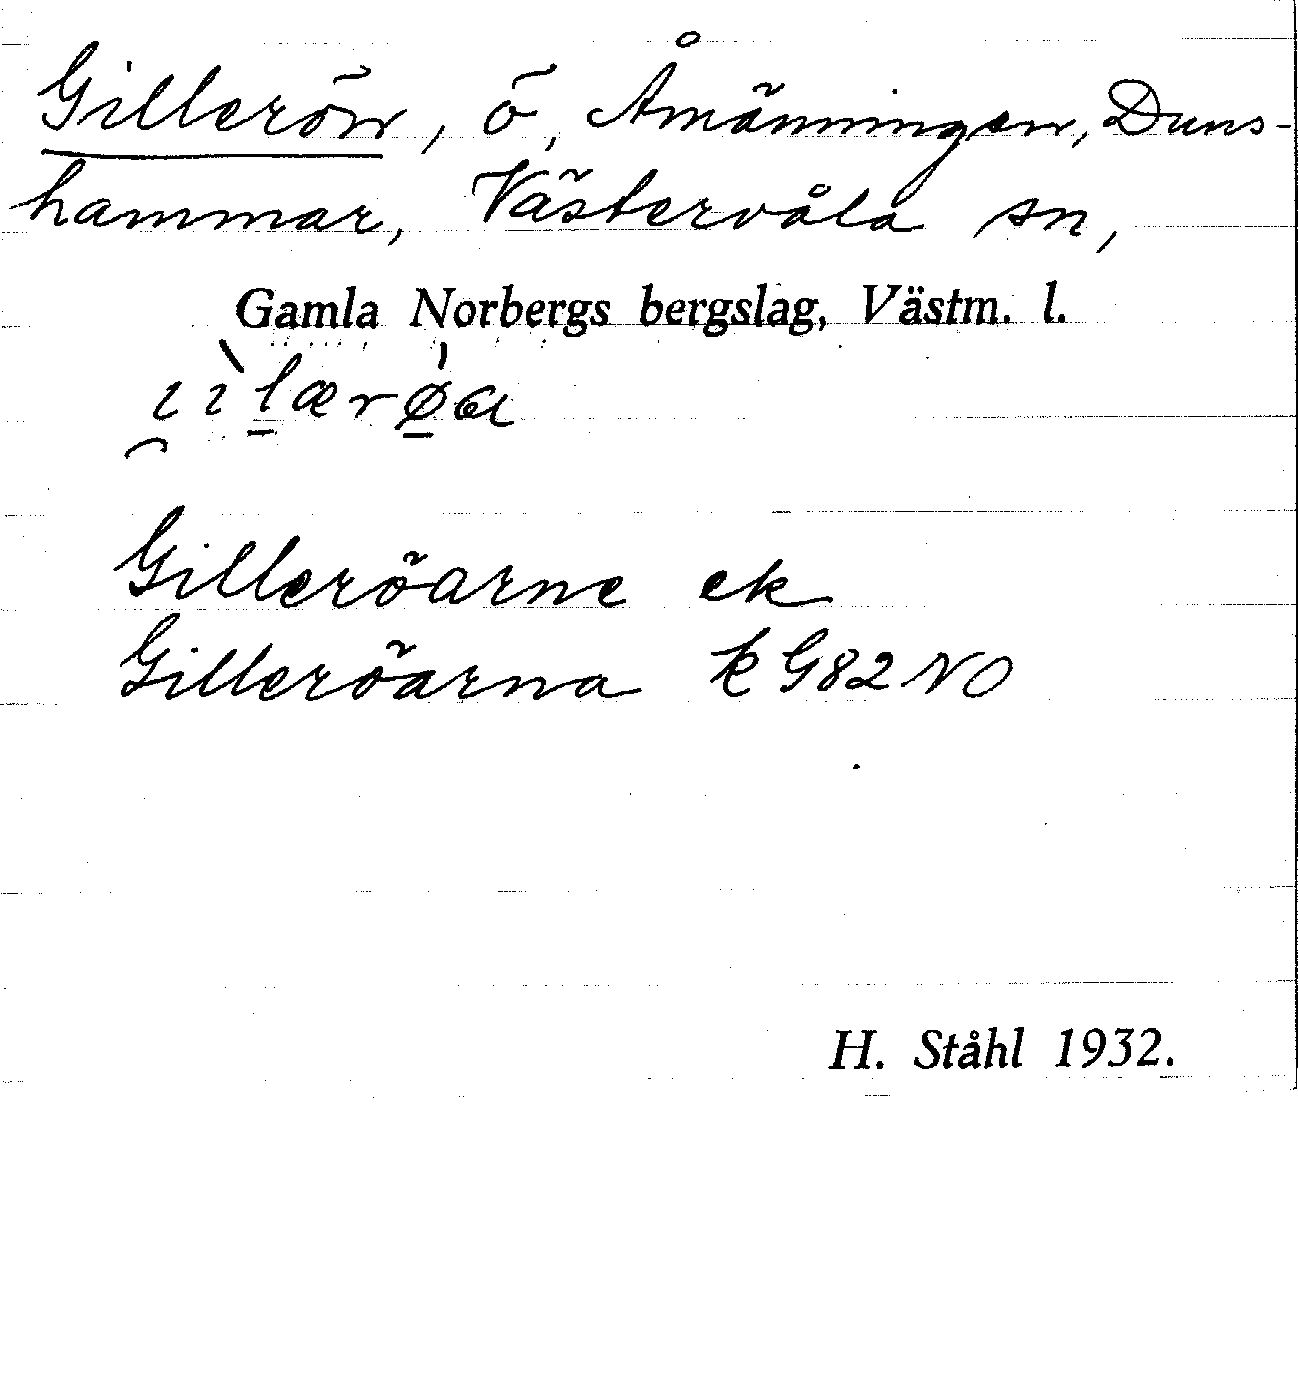 Gillerön, ö, Åmänningen, Duns-
hammar, Västervåla sn,
Gamla Norbergs bergslag, Västm. l.
Gilleröarne ek
Gilleröarna k G82 NO
H. Ståhl 1932.